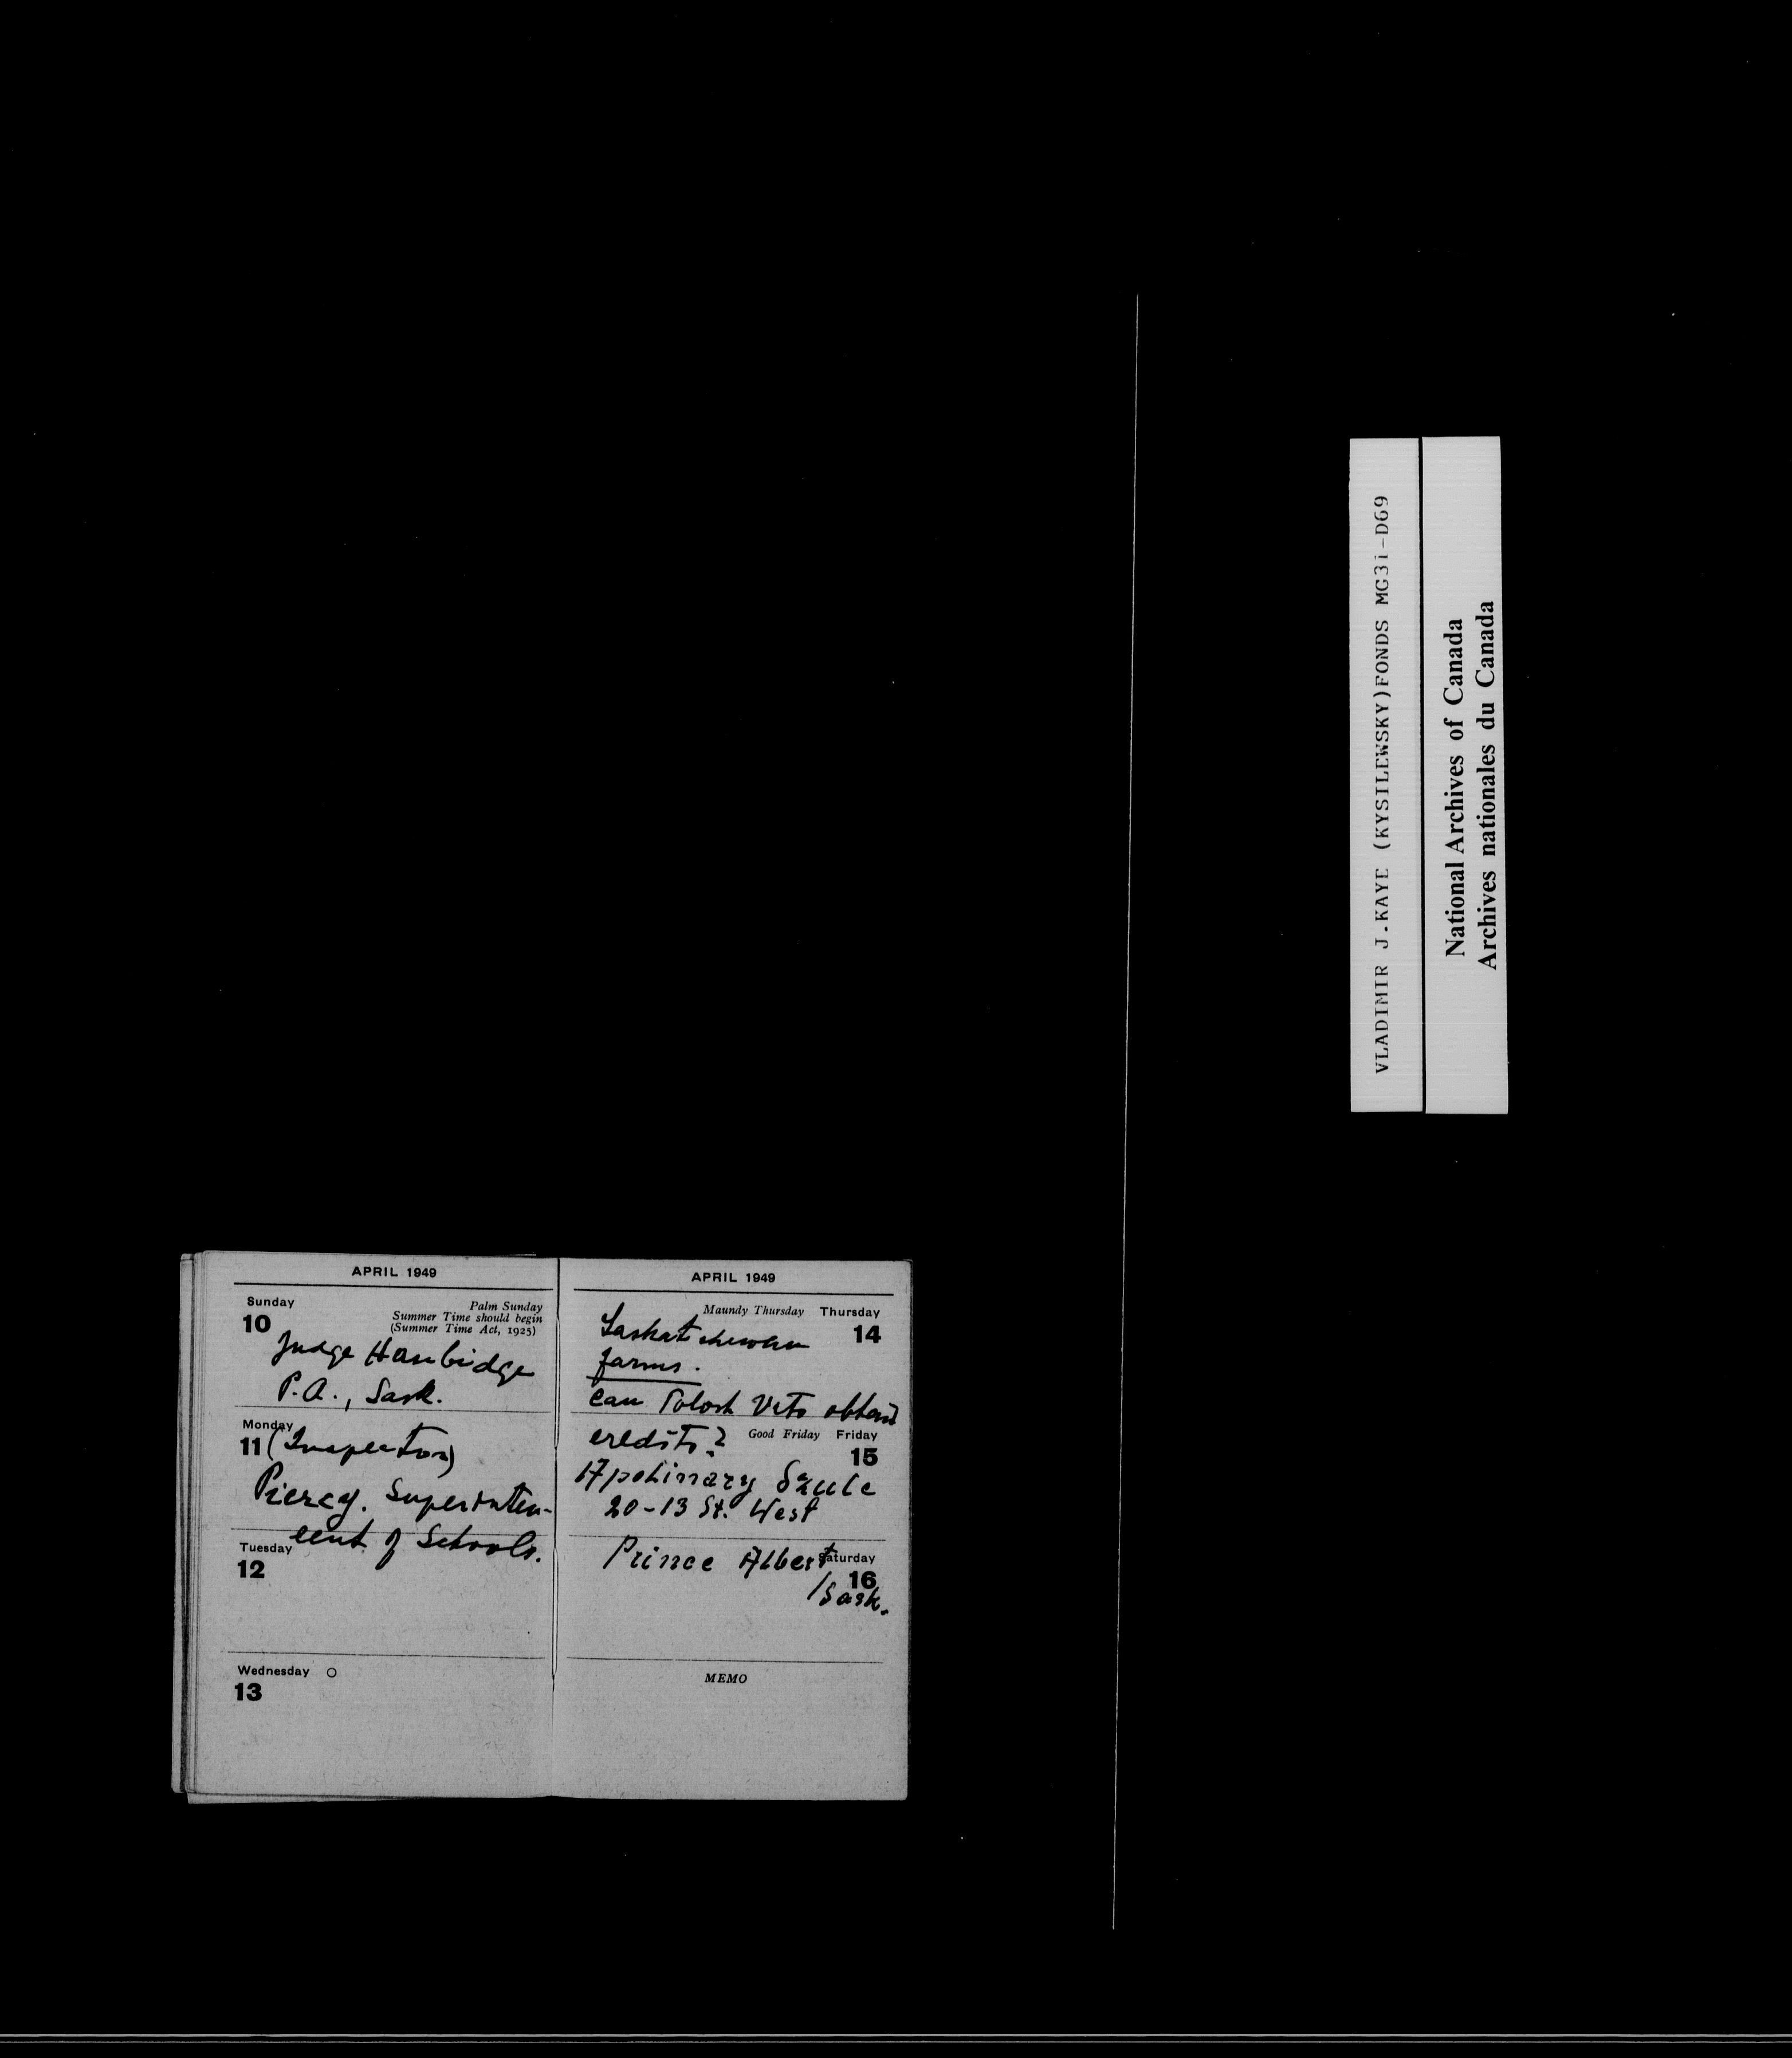 APRIL 1949
Sunday
10
Palm Sunday
Summer Time should begin
(Summer Time Act, 1925)
Judge Hanbidge
P.A., Sask.
Monday
11
(Inspector)
Piercy. Superinten-
dent of Schools.
Tuesday
12
Wednesday
13
APRIL 1949
Maundy Thursday Thursday
14
Saskatchewan
farms.
Can Polish Vets obtain
credits?
Good Friday Friday
15
Apolinary Szulc
20-13 St. West
Prince Albert
Saturday
16
/Sask.
MEMO
VLADIMIR J.KAYE (KYSILEWSKY)FONDS MG31-D69
National Archives of Canada
Archives nationales du Canada